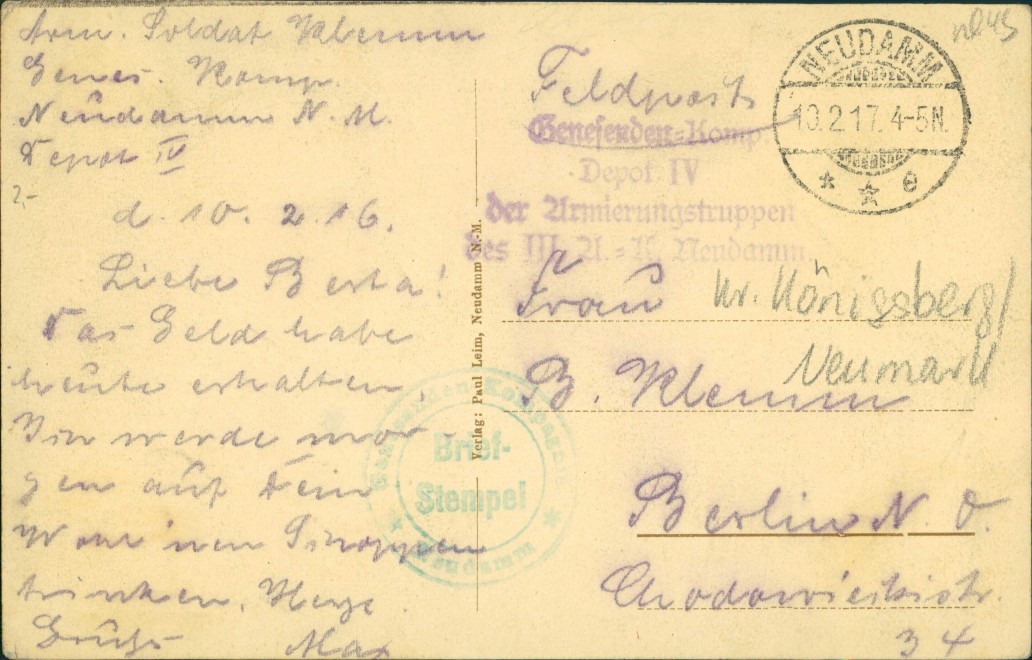 Arm. Soldat Klemm
Genes. Komp.
Neudamm N. M.
Depot IV
d. 10. 2. 16.
Liebe Berta!
Das Geld habe
heute erhalten,
werde mor-
gen auf Dein
trinken. Herzl.
Gruß Max
Verlag: Paul Leim, Neudamm N.-M.
Brief-
Stempel
Feldpost
Genesenden-Komp.
Depot IV
der Armierungstruppen
des III. A.-K. Neudamm.
NEUDAMM
10.2.17. 4-5N.
* * e
Frau
Kr. Königsberg/
Neumark
B. Klemm
Berlin N. O.
Chodowieckistr.
34